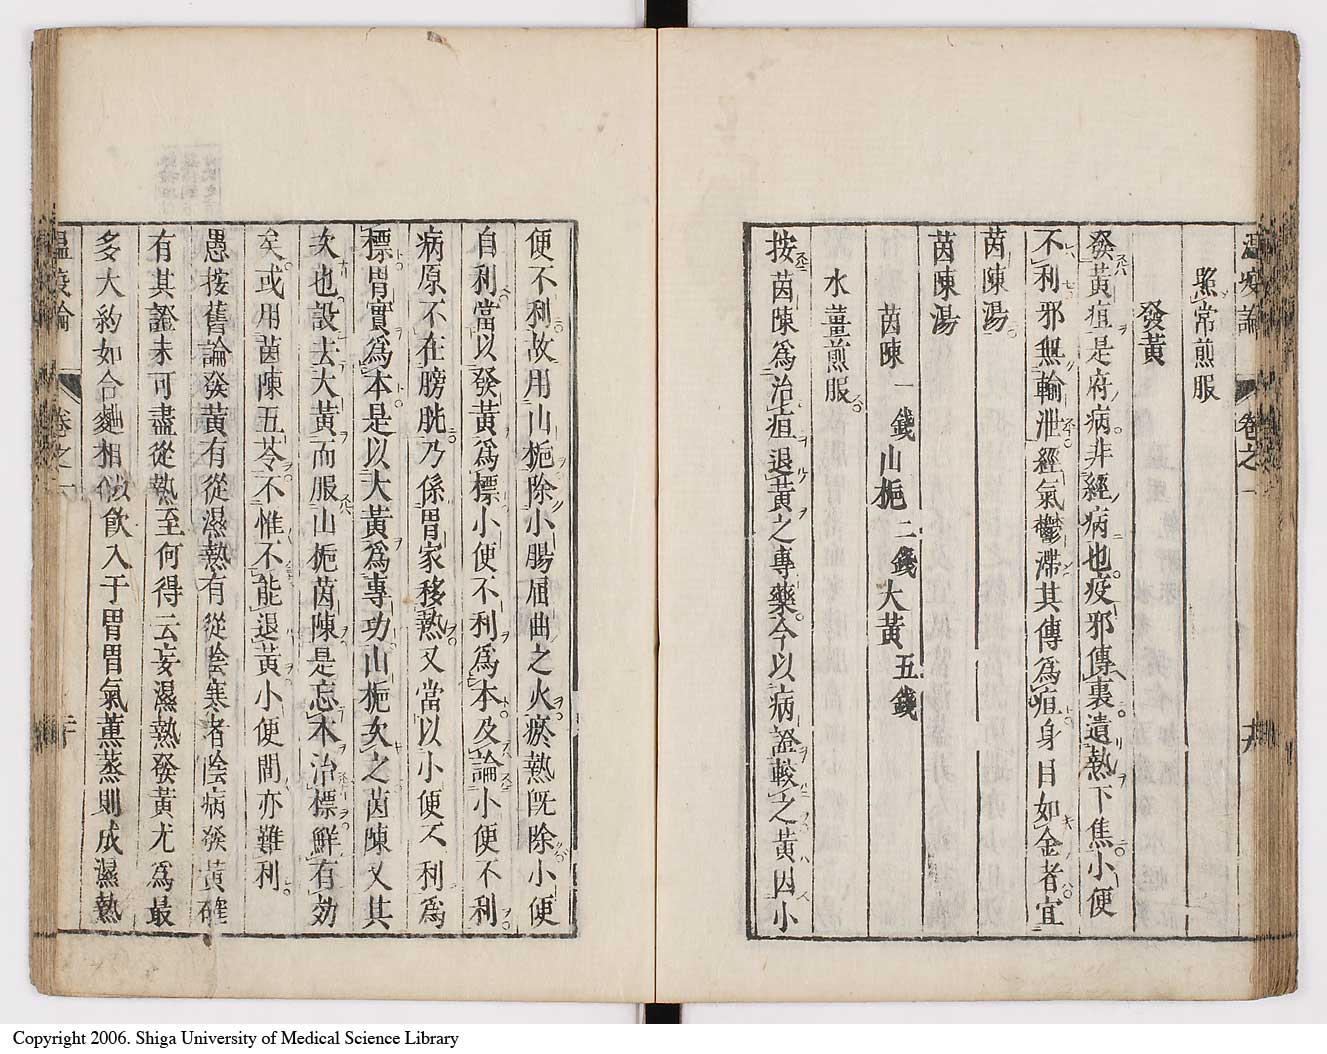 温疫論 卷之一 十九
照常煎服
發黃
發黃疸是府病非經病也疫邪傳裏遺熱下焦小便
不利邪無輸泄經氣鬱滯其傳爲疸身目如金者宜
茵陳湯
茵陳湯
茵陳一錢山梔二錢大黃五錢
水薑煎服
按茵陳爲治疸退黃之專藥今以病證較之黃因小
便不利故用山梔除小腸屈曲之火瘀熱旣除小便
自利當以發黃爲標小便不利爲本及論小便不利
病原不在膀胱乃係胃家移熱又當以小便不利爲
標胃實爲本是以大黃爲專功山梔次之茵陳又其
次也設去大黃而服山梔茵陳是忘本治標鮮有効
矣或用茵陳五苓不惟不能退黃小便間亦難利
愚按舊論發黃有從濕熱有從陰寒者陰病發黃確
有其證未可盡從熱至何得云妄濕熱發黃尤爲最
多大約如合麯相似飮入于胃胃氣薰蒸則成濕熱
溫疫論 卷之一 二十
Copyright 2006. Shiga University of Medical Science Library